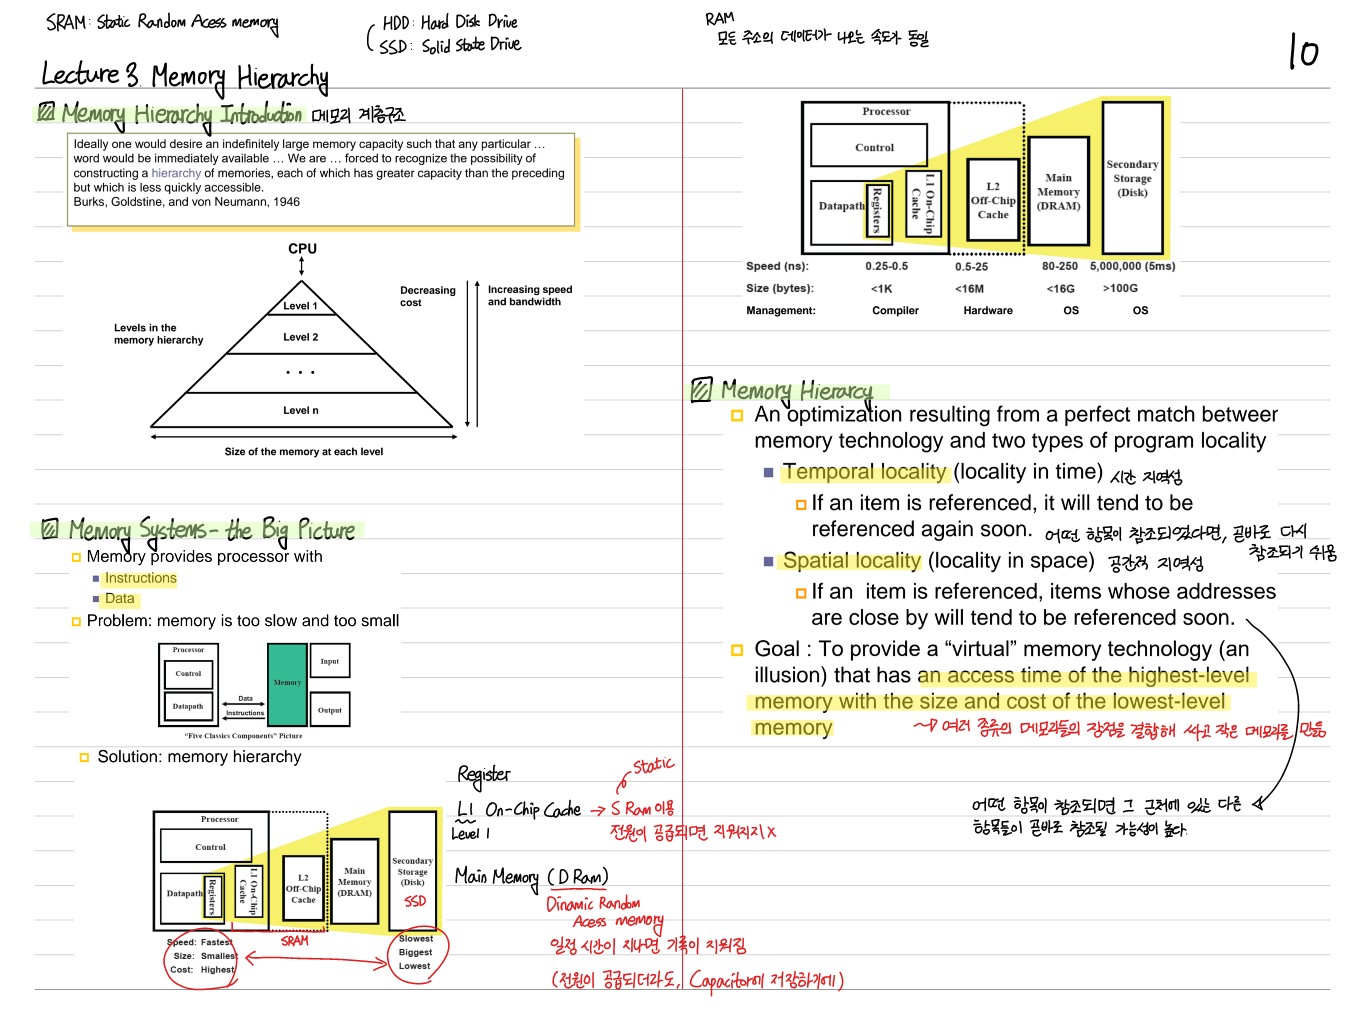 SRAM: Static Random Acess memory
HDD: Hard Disk Drive
SSD: Solid State Drive
RAM
모든 주소의 데이터가 나오는 속도가 동일
10
Lecture 3. Memory Hierarchy
Memory Hierarchy Introduction 메모리 계층구조
Ideally one would desire an indefinitely large memory capacity such that any particular …
word would be immediately available … We are … forced to recognize the possibility of
constructing a hierarchy of memories, each of which has greater capacity than the preceding
but which is less quickly accessible.
Burks, Goldstine, and von Neumann, 1946
CPU
Level 1
Level 2
. . .
Level n
Levels in the
memory hierarchy
Decreasing
cost
Increasing speed
and bandwidth
Size of the memory at each level
Memory Systems - the Big Picture
Memory provides processor with
Instructions
Data
Problem: memory is too slow and too small
Processor
Control
Datapath
Data
Instructions
Memory
Input
Output
"Five Classics Components" Picture
Solution: memory hierarchy
Processor
Control
Datapath
Registers
L1 On-Chip
Cache
L2
Off-Chip
Cache
Main
Memory
(DRAM)
Secondary
Storage
(Disk)
SSD
SRAM
Speed: Fastest
Size: Smallest
Cost: Highest
Slowest
Biggest
Lowest
Register
L1 On-Chip Cache → S Ram 이용
Static
Level 1
전원이 공급되면 지워지지 X
Main Memory (D Ram)
Dinamic Random
Acess memory
일정 시간이 지나면 기록이 지워짐
(전원이 공급되더라도, Capacitor에 저장하기에)
Processor
Control
Datapath
Registers
L1 On-Chip
Cache
L2
Off-Chip
Cache
Main
Memory
(DRAM)
Secondary
Storage
(Disk)
Speed (ns): 0.25-0.5 0.5-25 80-250 5,000,000 (5ms)
Size (bytes): <1K <16M <16G >100G
Management: Compiler Hardware OS OS
Memory Hierarcy
An optimization resulting from a perfect match between
memory technology and two types of program locality
Temporal locality (locality in time) 시간 지역성
If an item is referenced, it will tend to be
referenced again soon. 어떤 항목이 참조되었다면, 곧바로 다시
참조되기 쉬움
Spatial locality (locality in space) 공간적 지역성
If an item is referenced, items whose addresses
are close by will tend to be referenced soon.
Goal : To provide a “virtual” memory technology (an
illusion) that has an access time of the highest-level
memory with the size and cost of the lowest-level
memory
→ 여러 종류의 메모리들의 장점을 결합해 싸고 작은 메모리를 만듦
어떤 항목이 참조되면 그 근처에 있는 다른
항목들이 곧바로 참조될 가능성이 높다.